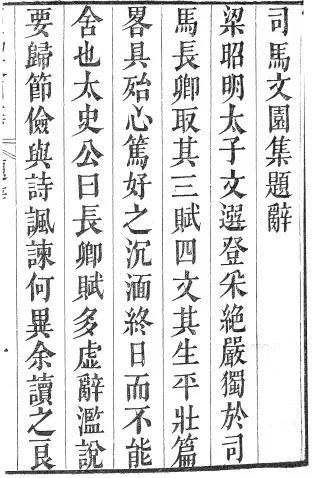 司馬文園集題辭
梁昭明太子文選登采絶嚴獨於司
馬長卿取其三賦四文其生平壯篇
畧具殆心篤好之沉湎終日而不能
舍也太史公曰長卿賦多虛辭濫說
要歸節儉與詩諷諫何異余讀之良